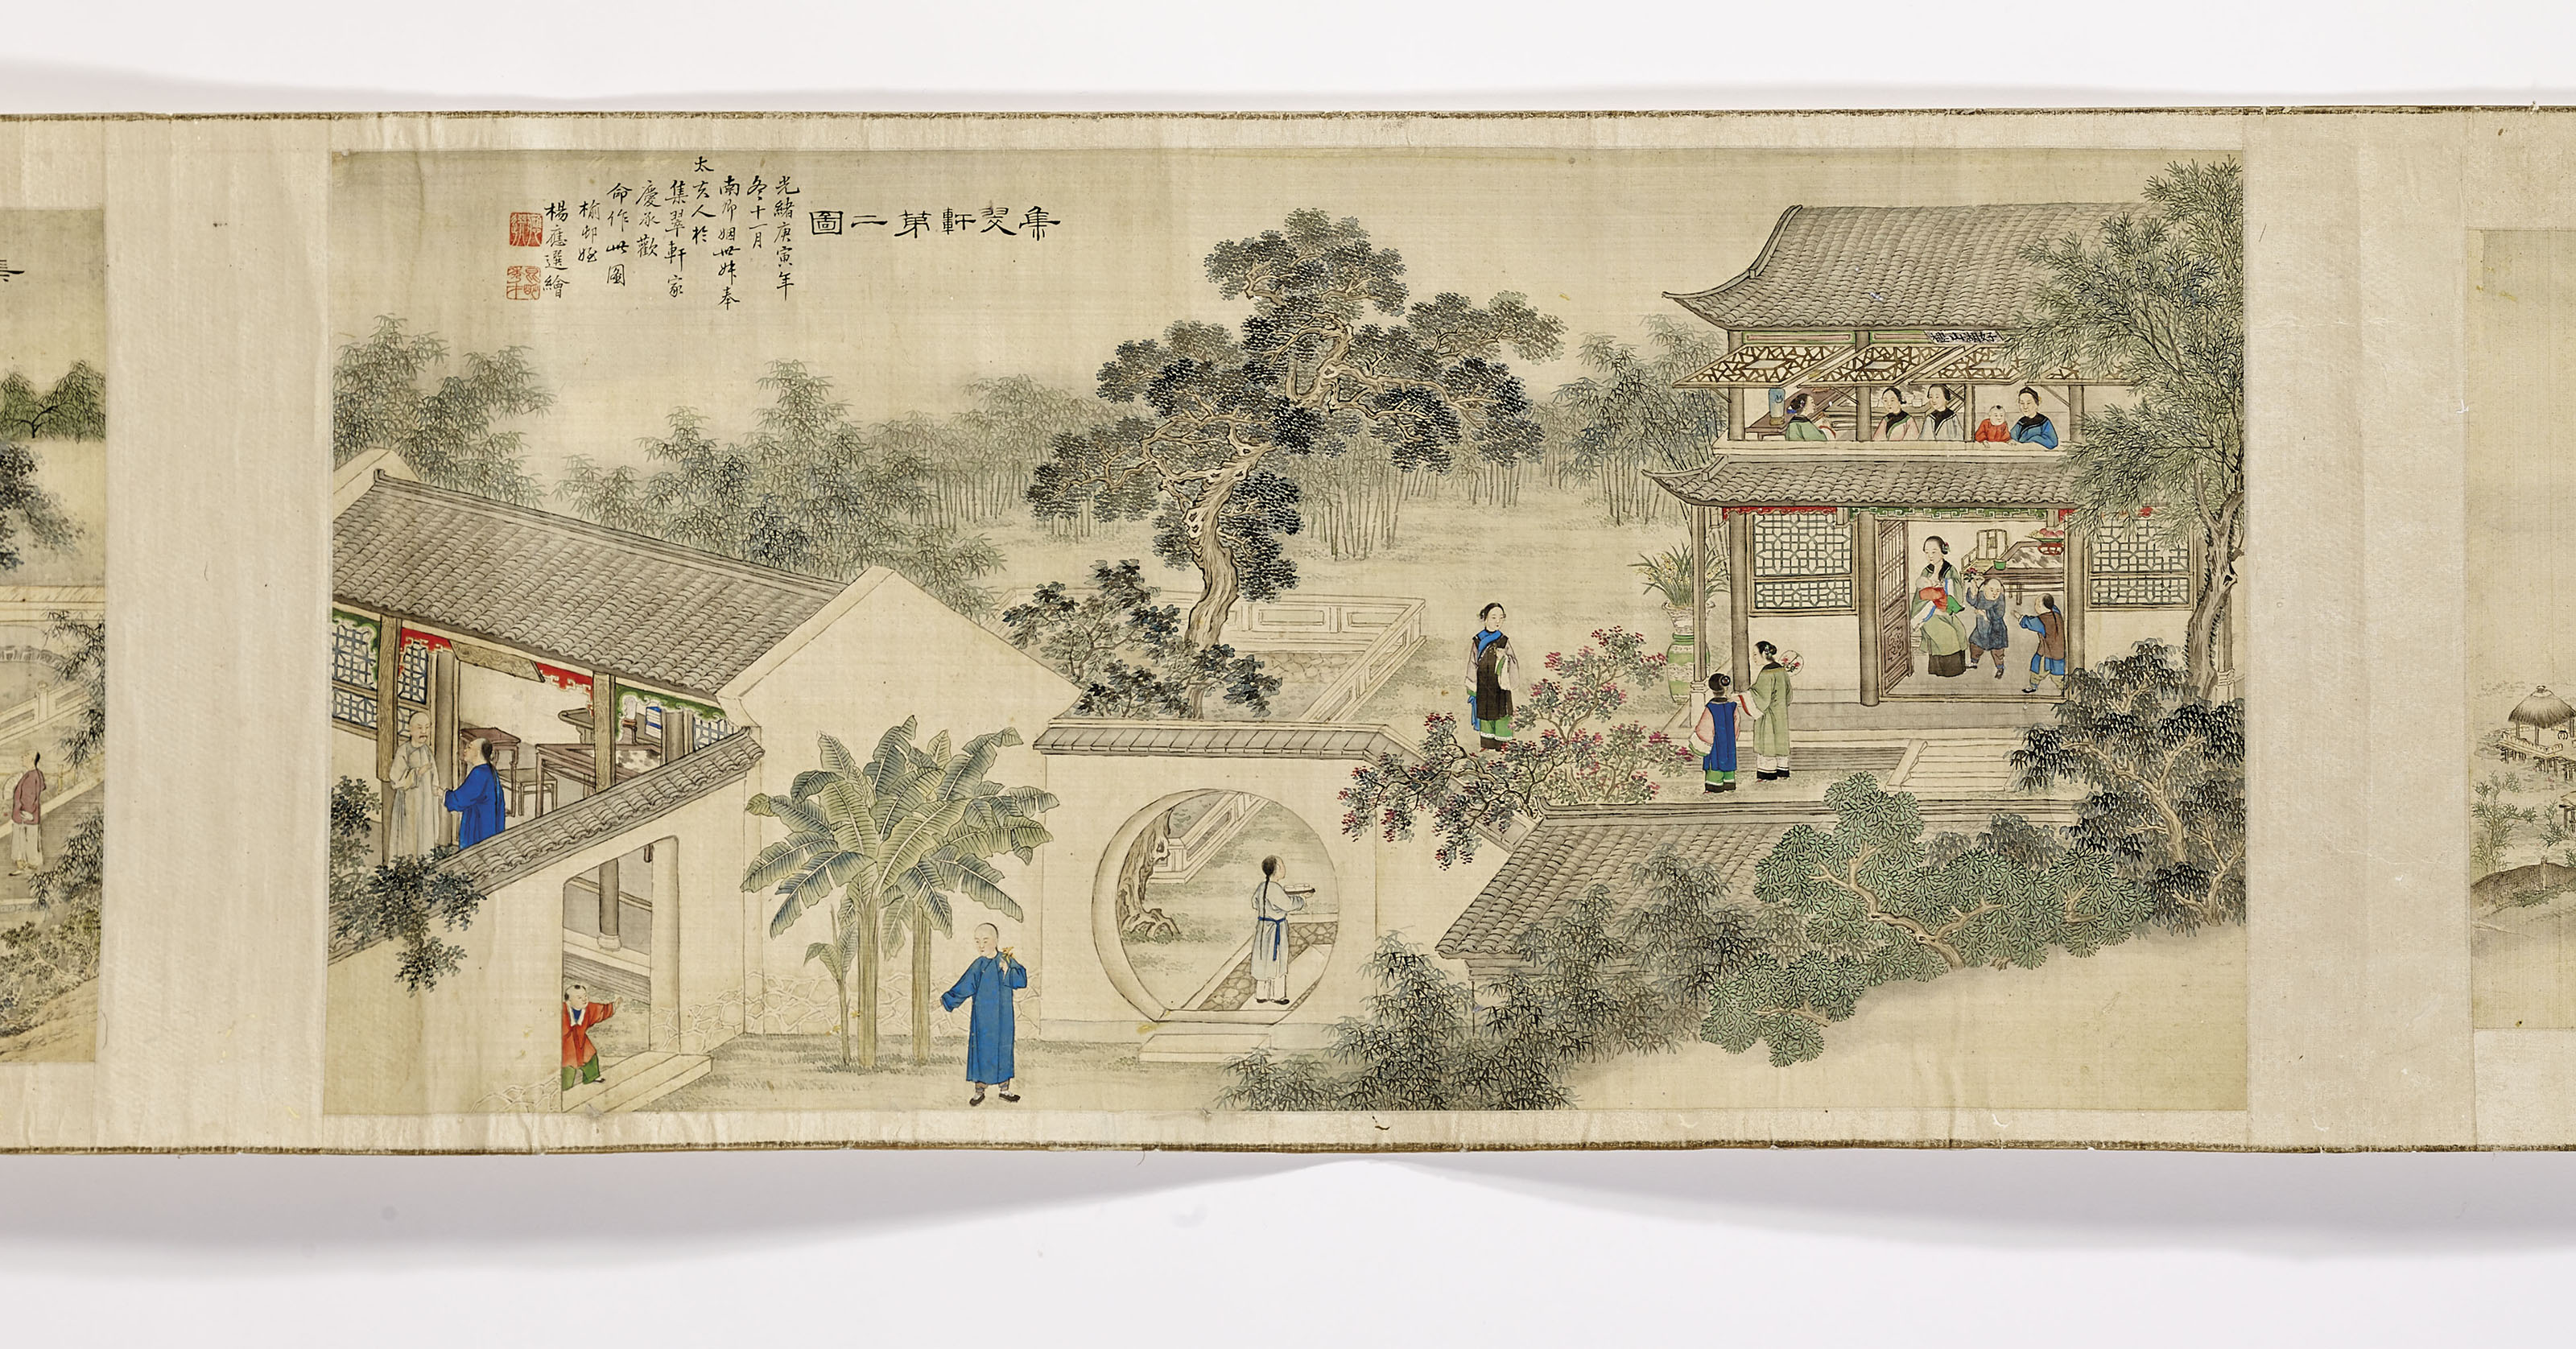 集翠軒第二圖
光緒庚寅年
冬十一月
南卿姻世妹奉
太安人於
集翠軒家
慶承歡
命作此圖
榆邨姪
楊應選繪
好湖山樓